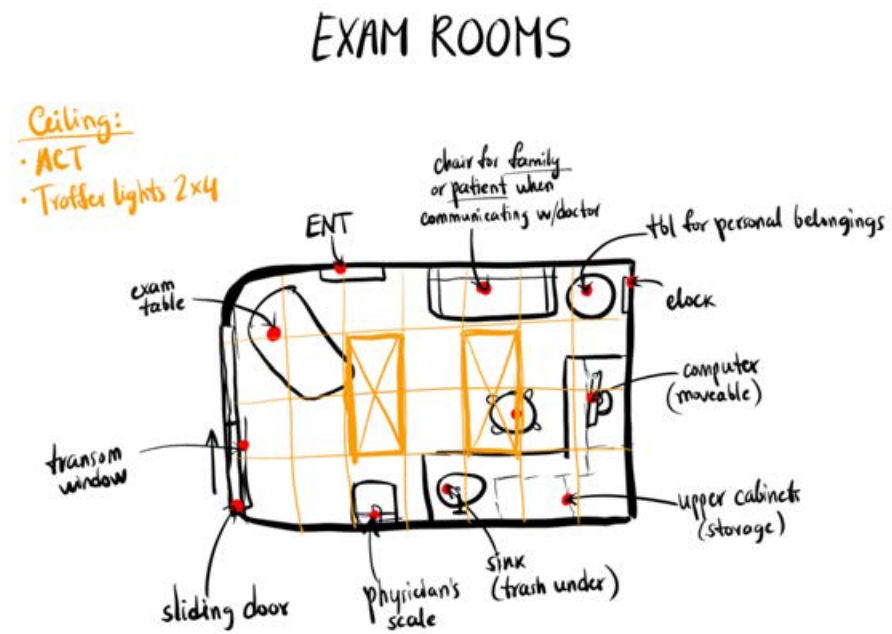 EXAM ROOMS
Ceiling:
• ACT
• Troffer lights 2x4
ENT
chair for family
or patient when
communicating w/doctor
tbl for personal belongings
exam
table
clock
computer
(moveable)
transom
window
upper cabinets
(storage)
sliding door
physician's
scale
sink
(trash under)